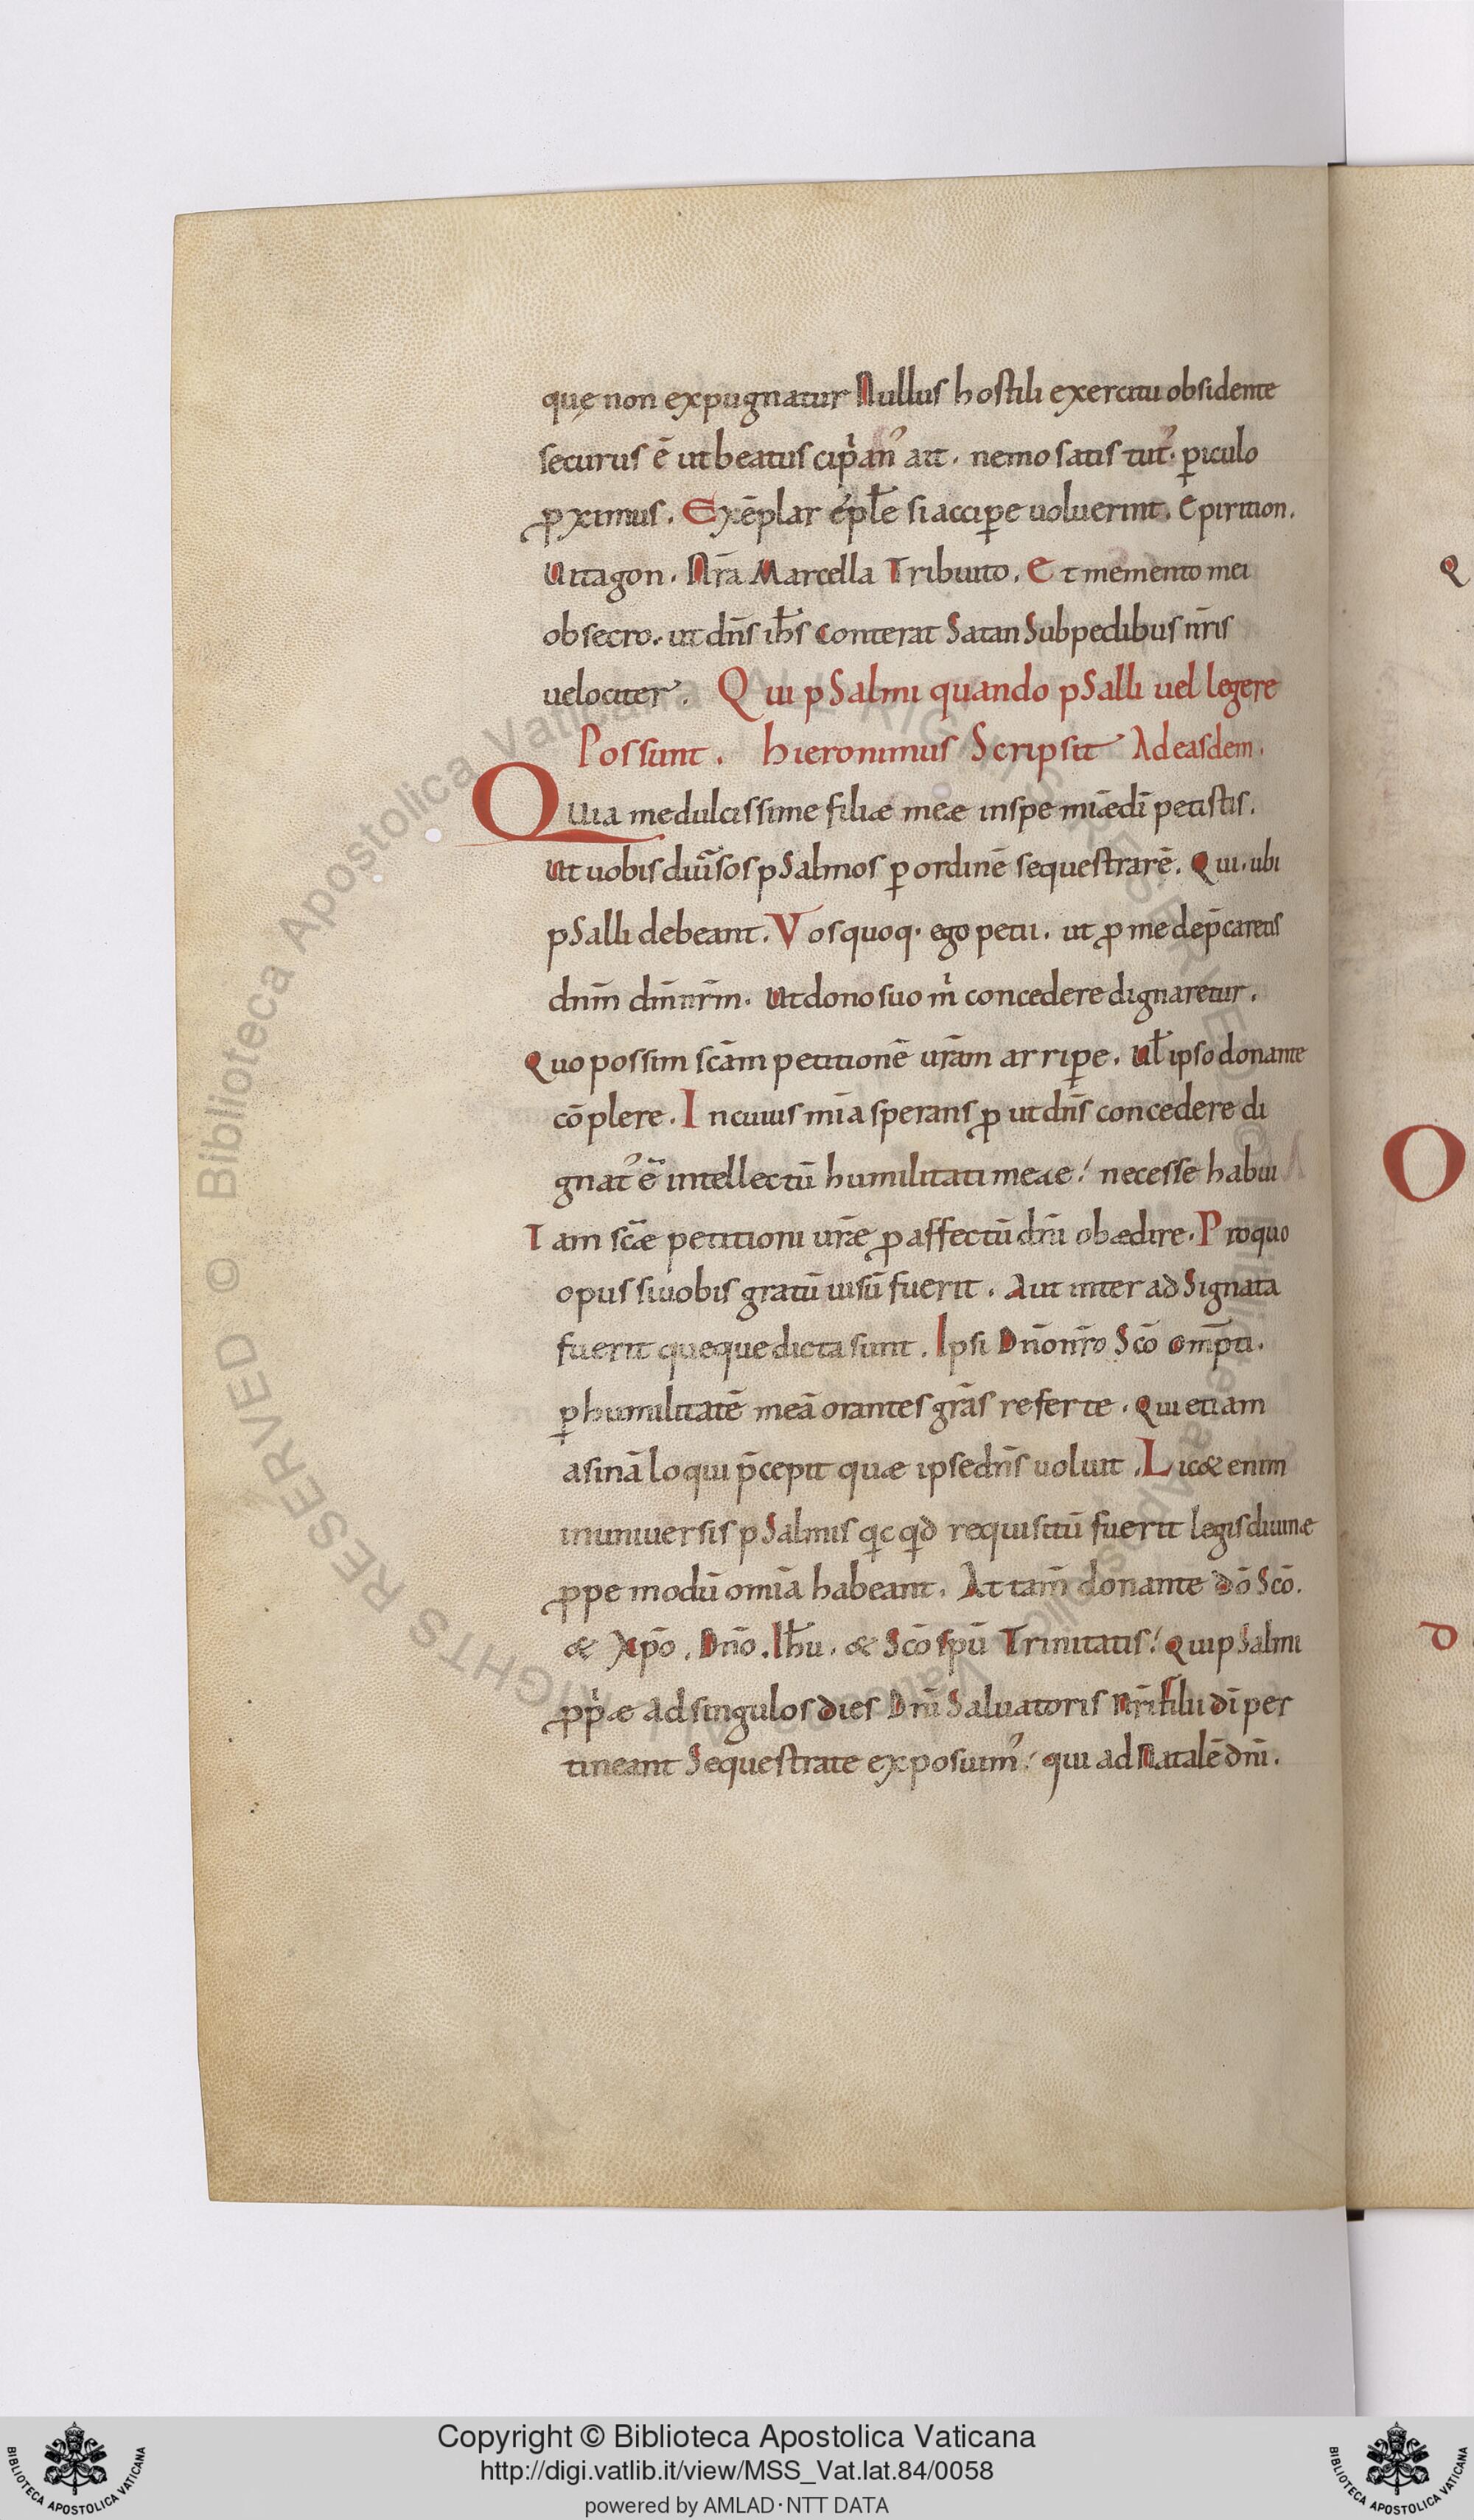 quę non expugnatur Nullus hostili exercitu obsidente
securus ē ut beatus cip̄an᾽ ait. nemo satis tut᾽. p̱iculo
ꝓximus. Exēplar ep̄le si accip̱e uoluerint. Epirition.
Uttagon. Nr̄a Marcella Tribuito. Et memento mei
obsecro. ut dn̄s ih̄s Conterat Satan Sub pedibus nr̄is
uelociter. Qui pSalmi quando pSalli uel legere
Possunt. hieronimus Scripsit Ad easdem.
Quia me dulcissime filiæ meæ in spe mīæ dī petistis.
Ut uobis diūsos pSalmos p̱ ordinē sequestrarē. Qui. ubi
pSalli debeant. Vos quoq. ego petii. ut ꝓ me dep̄caretis
dnm̄ dm̄ nrm̄. Ut dono suo m̄ concedere dignaretur.
Quo possim scām petitionē urām arrip̱e. Ul̄ ipso donante
cōplere. In cuius mīa sperans ꝓut dn̄s concedere di
gnat᾽ ē intellectū humilitati meae! necesse habui
Iam scǣ petitioni urē ꝓ affectū dn̄i obædire. Pro quo
opus si uobis gratū uisū fuerit. Aut inter adSignata
fuerit queque dicta sunt. Ipsi Dn̄o nr̄o Scō omp̄ti.
p̱ humilitatē meā orantes grās referte. Qui etiam
asinā loqui p̄cepit quæ ipse dn̄s uoluit. Lic& enim
in uniuersis pSalmis qic qid requisitū fuerit legis diuinæ
ꝓpe modū omīa habeant. Attam̄ donante dō Scō.
& Xp̄o. Dn̄o. Ih̄u. & Scō spū Trinitatis! Qui pSalmi
ꝓp̄æ ad singulos dies Dn̄i Saluatoris Nr̄i filii dī per
tineant Sequestrate exposuim᾽! qui ad Natalē dn̄i.
Q
O
d
© Biblioteca Apostolica Vaticana ALL RIGHTS RESERVED
© Biblioteca Apostolica Vaticana ALL RIGHTS RESERVED
Copyright © Biblioteca Apostolica Vaticana
http://digi.vatlib.it/view/MSS_Vat.lat.84/0058
powered by AMLAD·NTT DATA
BIBLIOTECA APOSTOLICA VATICANA
BIBLIOTECA APOSTOLICA VATICANA